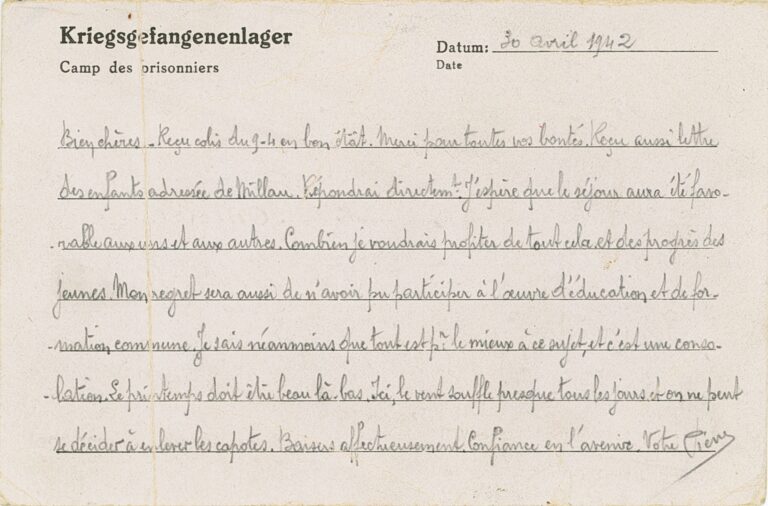 Kriegsgefangenenlager
Camp des prisonniers
Datum: 30 avril 1942
Date
Bien chères - Reçu colis du 9-4 en bon êtât. Merci pour toutes vos bontés. Reçu aussi lettre
des enfants adressée de Millau. Répondrai directemt. J'espère que le séjour aura été favo-
-rable aux uns et aux autres. Combien je voudrais profiter de tout cela, et des progrès des
jeunes. Mon regret sera aussi de n'avoir pu participer à l'œuvre d'éducation et de for-
-mation commune. Je sais néanmoins que tout est pr le mieux à ce sujet, et c'est une conso-
-lation. Le printemps doit être beau là-bas. Ici, le vent souffle presque tous les jours et on ne peut
se décider à enlever les capotes. Baisers affectueusement. Confiance en l'avenir. Votre Pierre